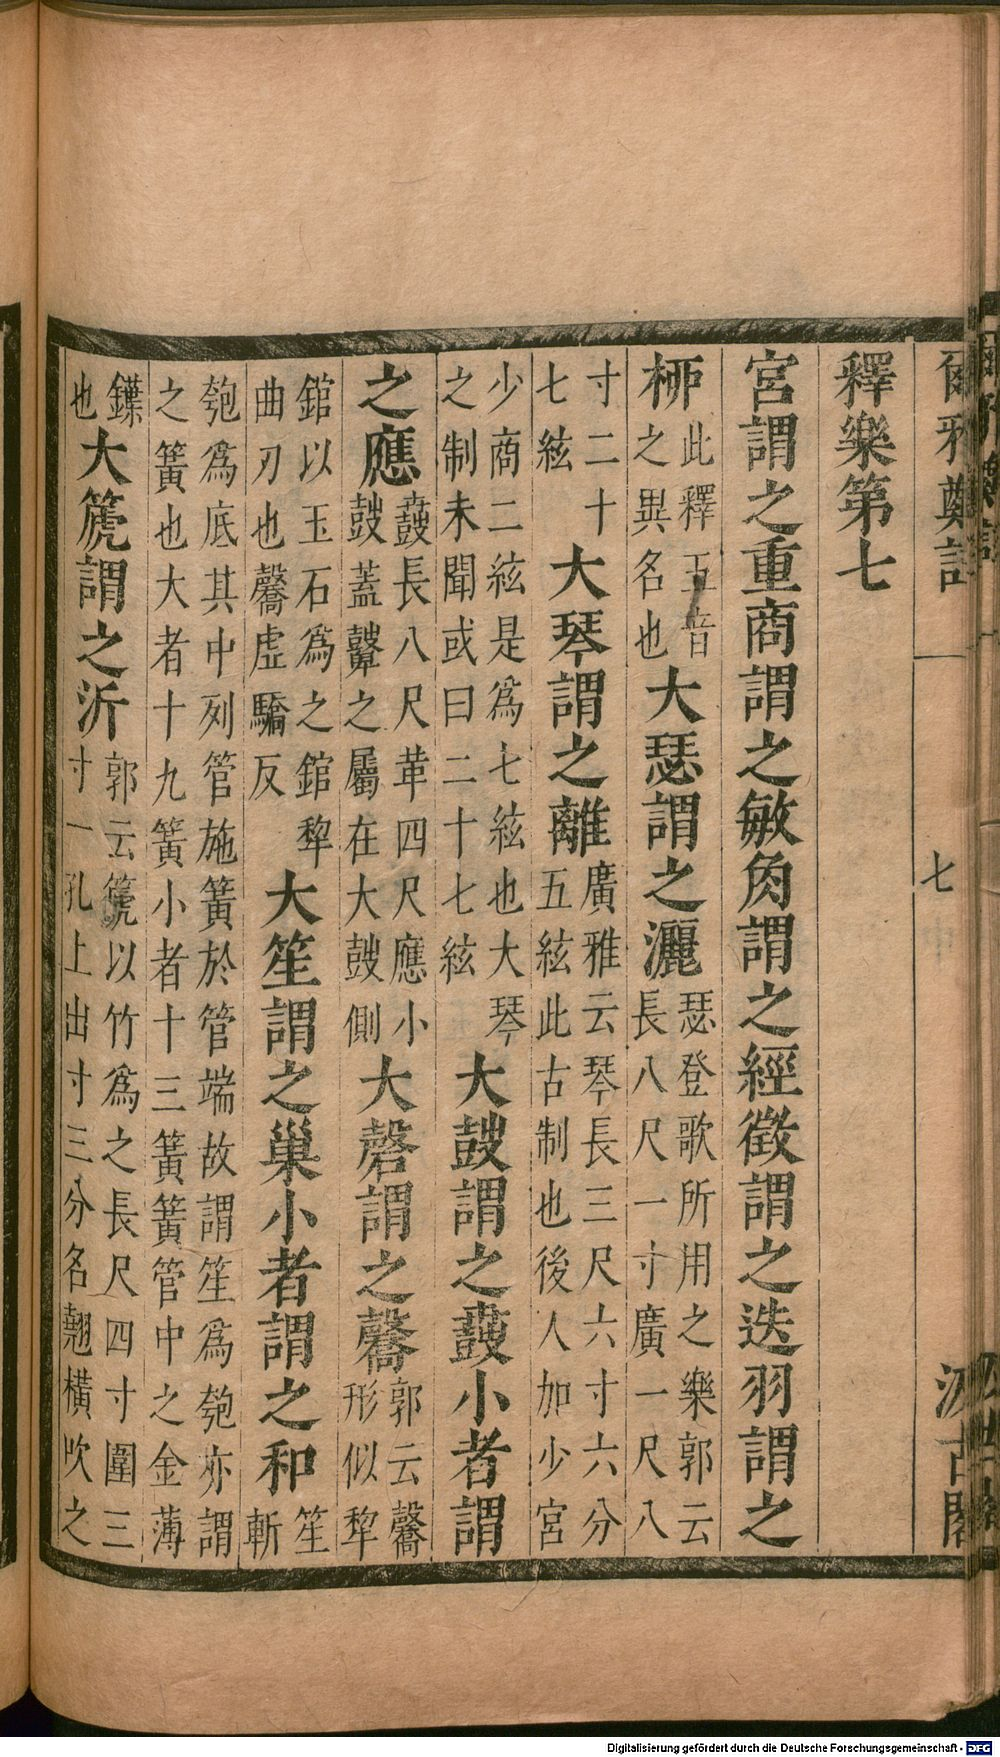 爾雅鄭註
七
汲古閣
釋樂第七
宮謂之重商謂之敏角謂之經徵謂之迭羽謂之
柳此釋五音之異名也大瑟謂之灑瑟登歌所用之樂郭云長八尺一寸廣一尺八
寸二十七絃大琴謂之離廣雅云琴長三尺六寸六分五絃此古制也後人加少宮
少商二絃是爲七絃也大琴之制未聞或曰二十七絃大鼓謂之鼖小者謂
之應鼖長八尺革四尺應小鼓蓋鼙之屬在大鼓側大磬謂之毊郭云毊形似犂
錧以玉石爲之錧犂曲刃也毊虛驕反大笙謂之巢小者謂之和笙斬
匏爲底其中列管施簧於管端故謂笙爲匏亦謂之簧也大者十九簧小者十三簧簧管中之金薄
鐷也大篪謂之沂郭云篪以竹爲之長尺四寸圍三寸一孔上出寸三分名翹橫吹之
Digitalisierung gefördert durch die Deutsche Forschungsgemeinschaft - DFG